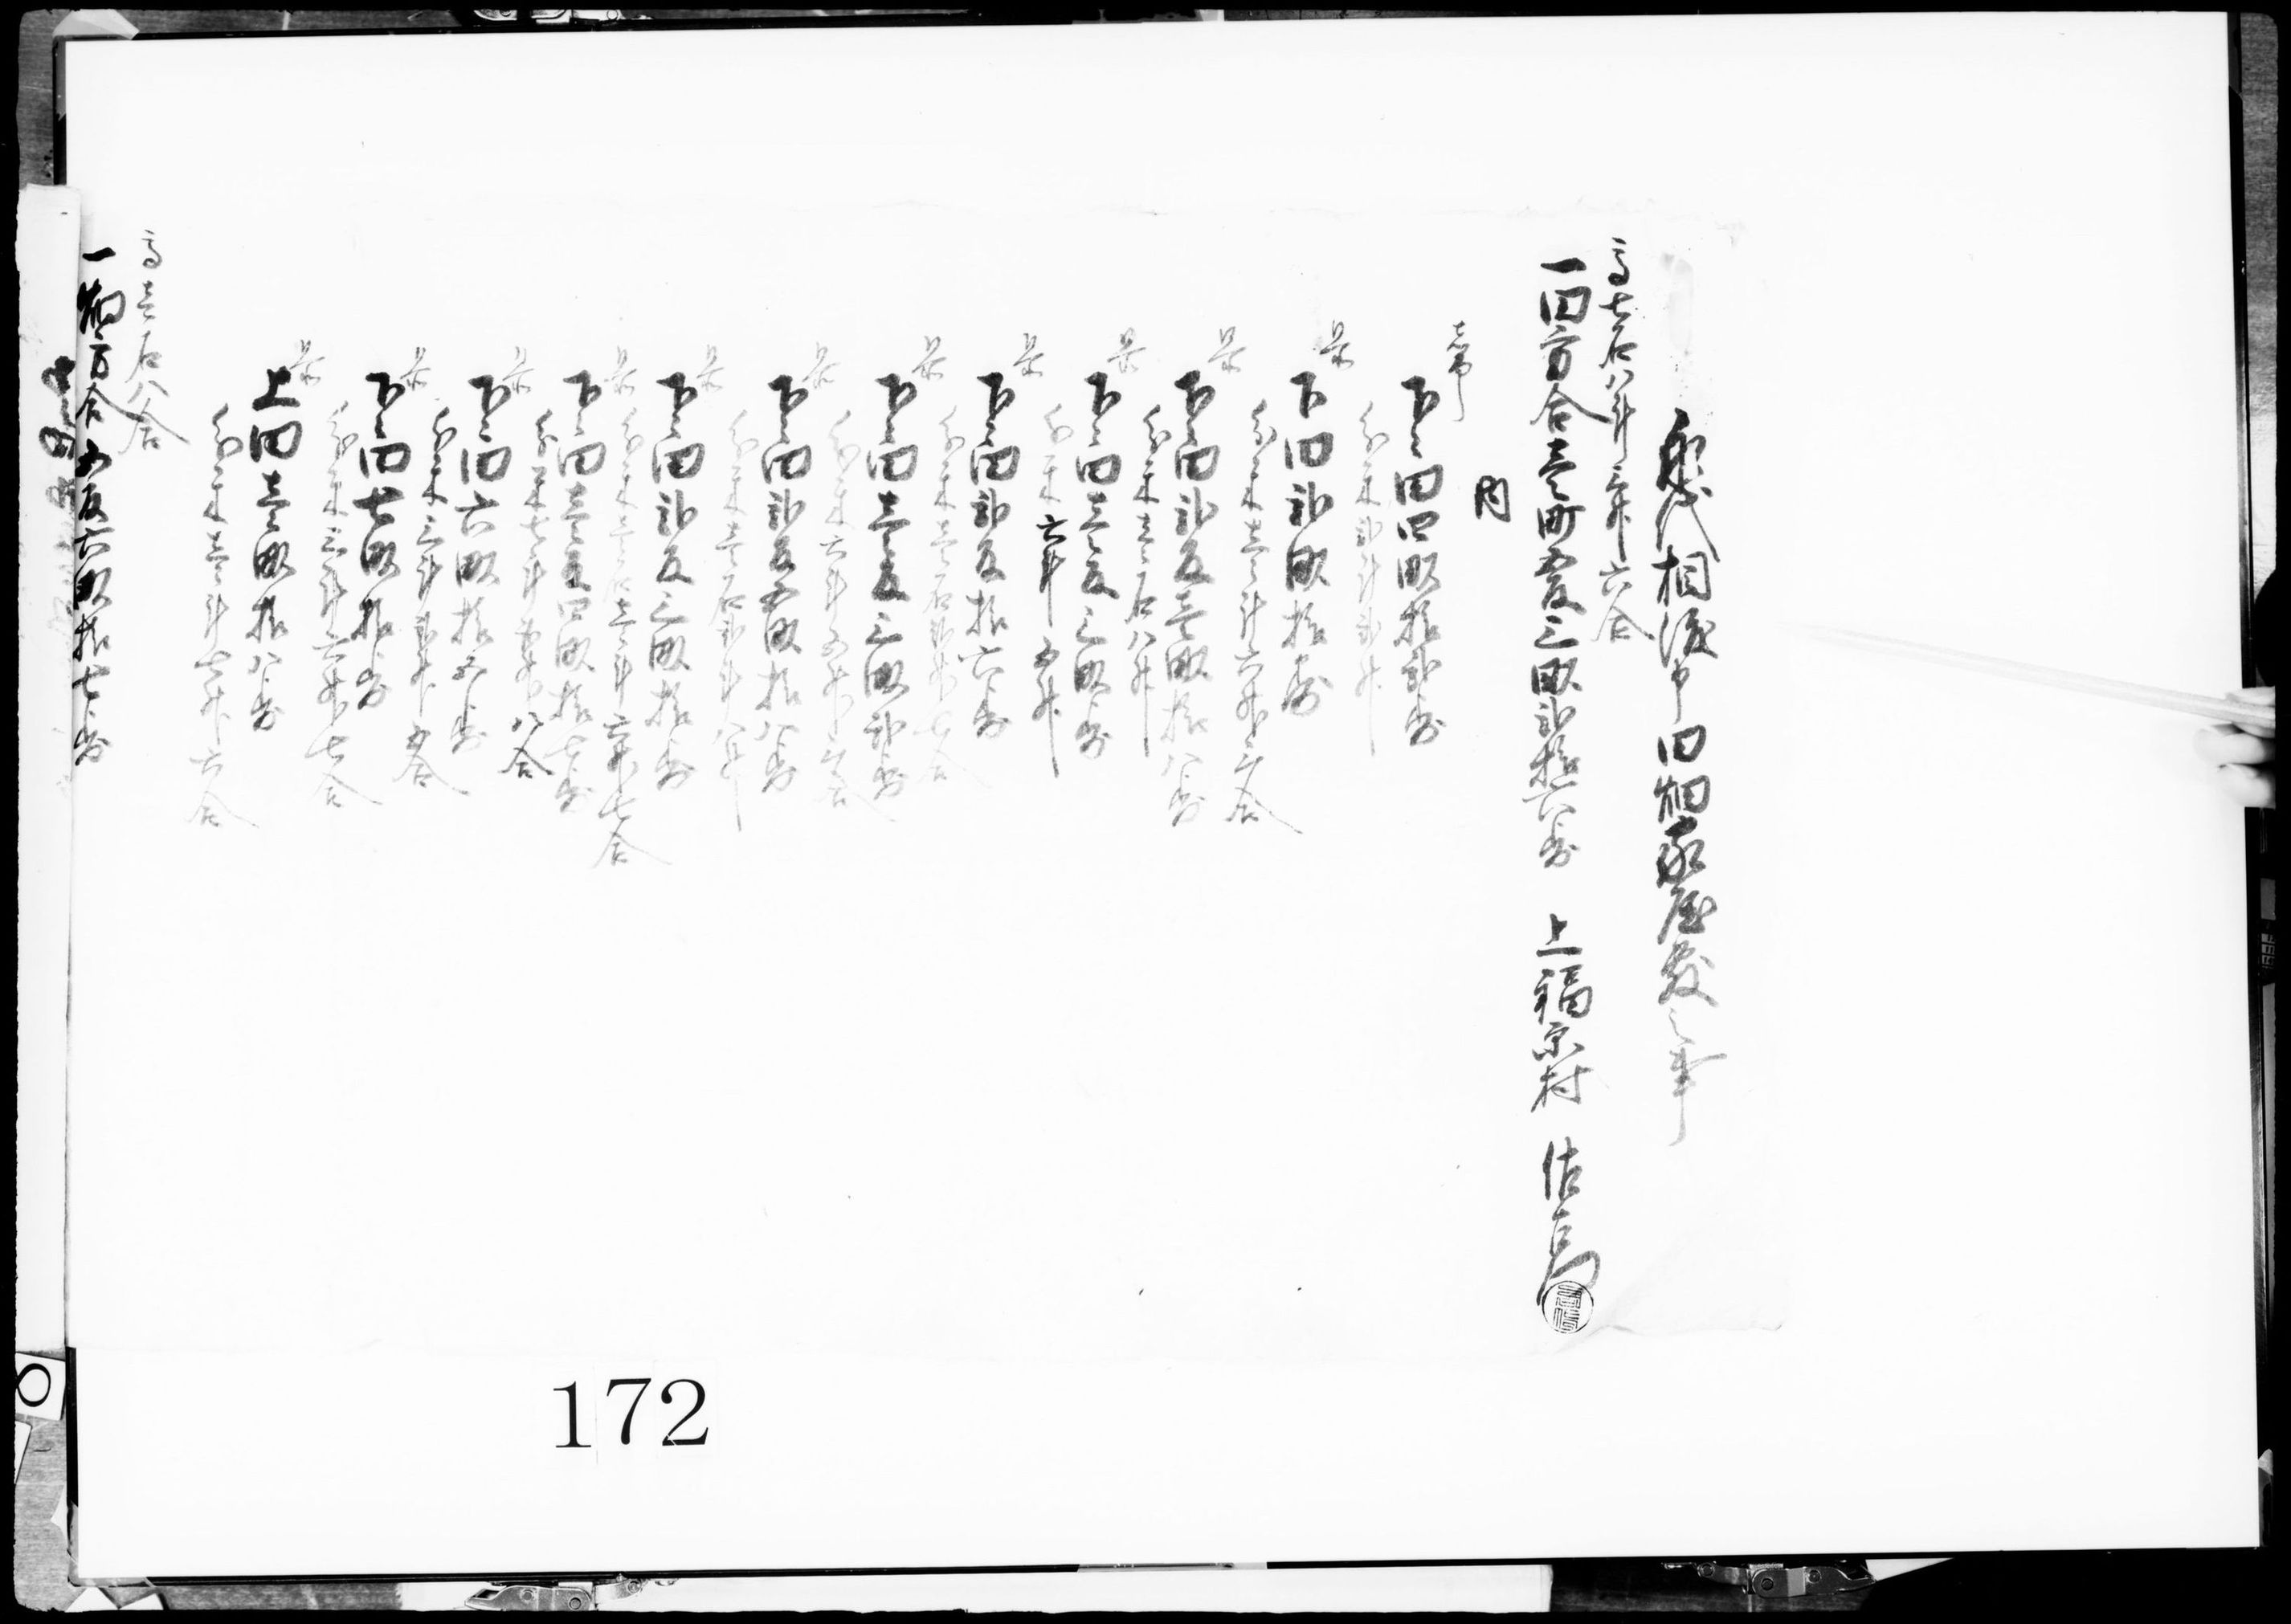 永代相渡申田畑家屋敷之事
高七石八斗三升六合
一田方合壱町五反三畝弐拾六歩 上福原村 佐古
内
下々田四畝拾弐歩
分米弐斗弐升
下田弐畝拾歩
分米壱斗六升三合
下々田弐反壱畝拾八歩
分米壱石八升
下々田壱反三畝歩
分米六斗五升
下々田弐反拾六歩
分米壱石弐升七合
下々田壱反三畝弐歩
分米六斗五升三合
下々田弐反五畝拾八歩
分米壱石弐斗八升
下々田弐反三畝拾歩
分米壱石壱斗六升七合
下々田壱反四畝拾七歩
分米七斗弐升八合
下々田六畝拾五歩
分米三斗弐升五合
下々田七畝拾歩
分米三斗六升七合
上田壱畝拾八歩
分米壱斗七升六合
高壱石八合
一畑方合五反六畝拾七歩
172